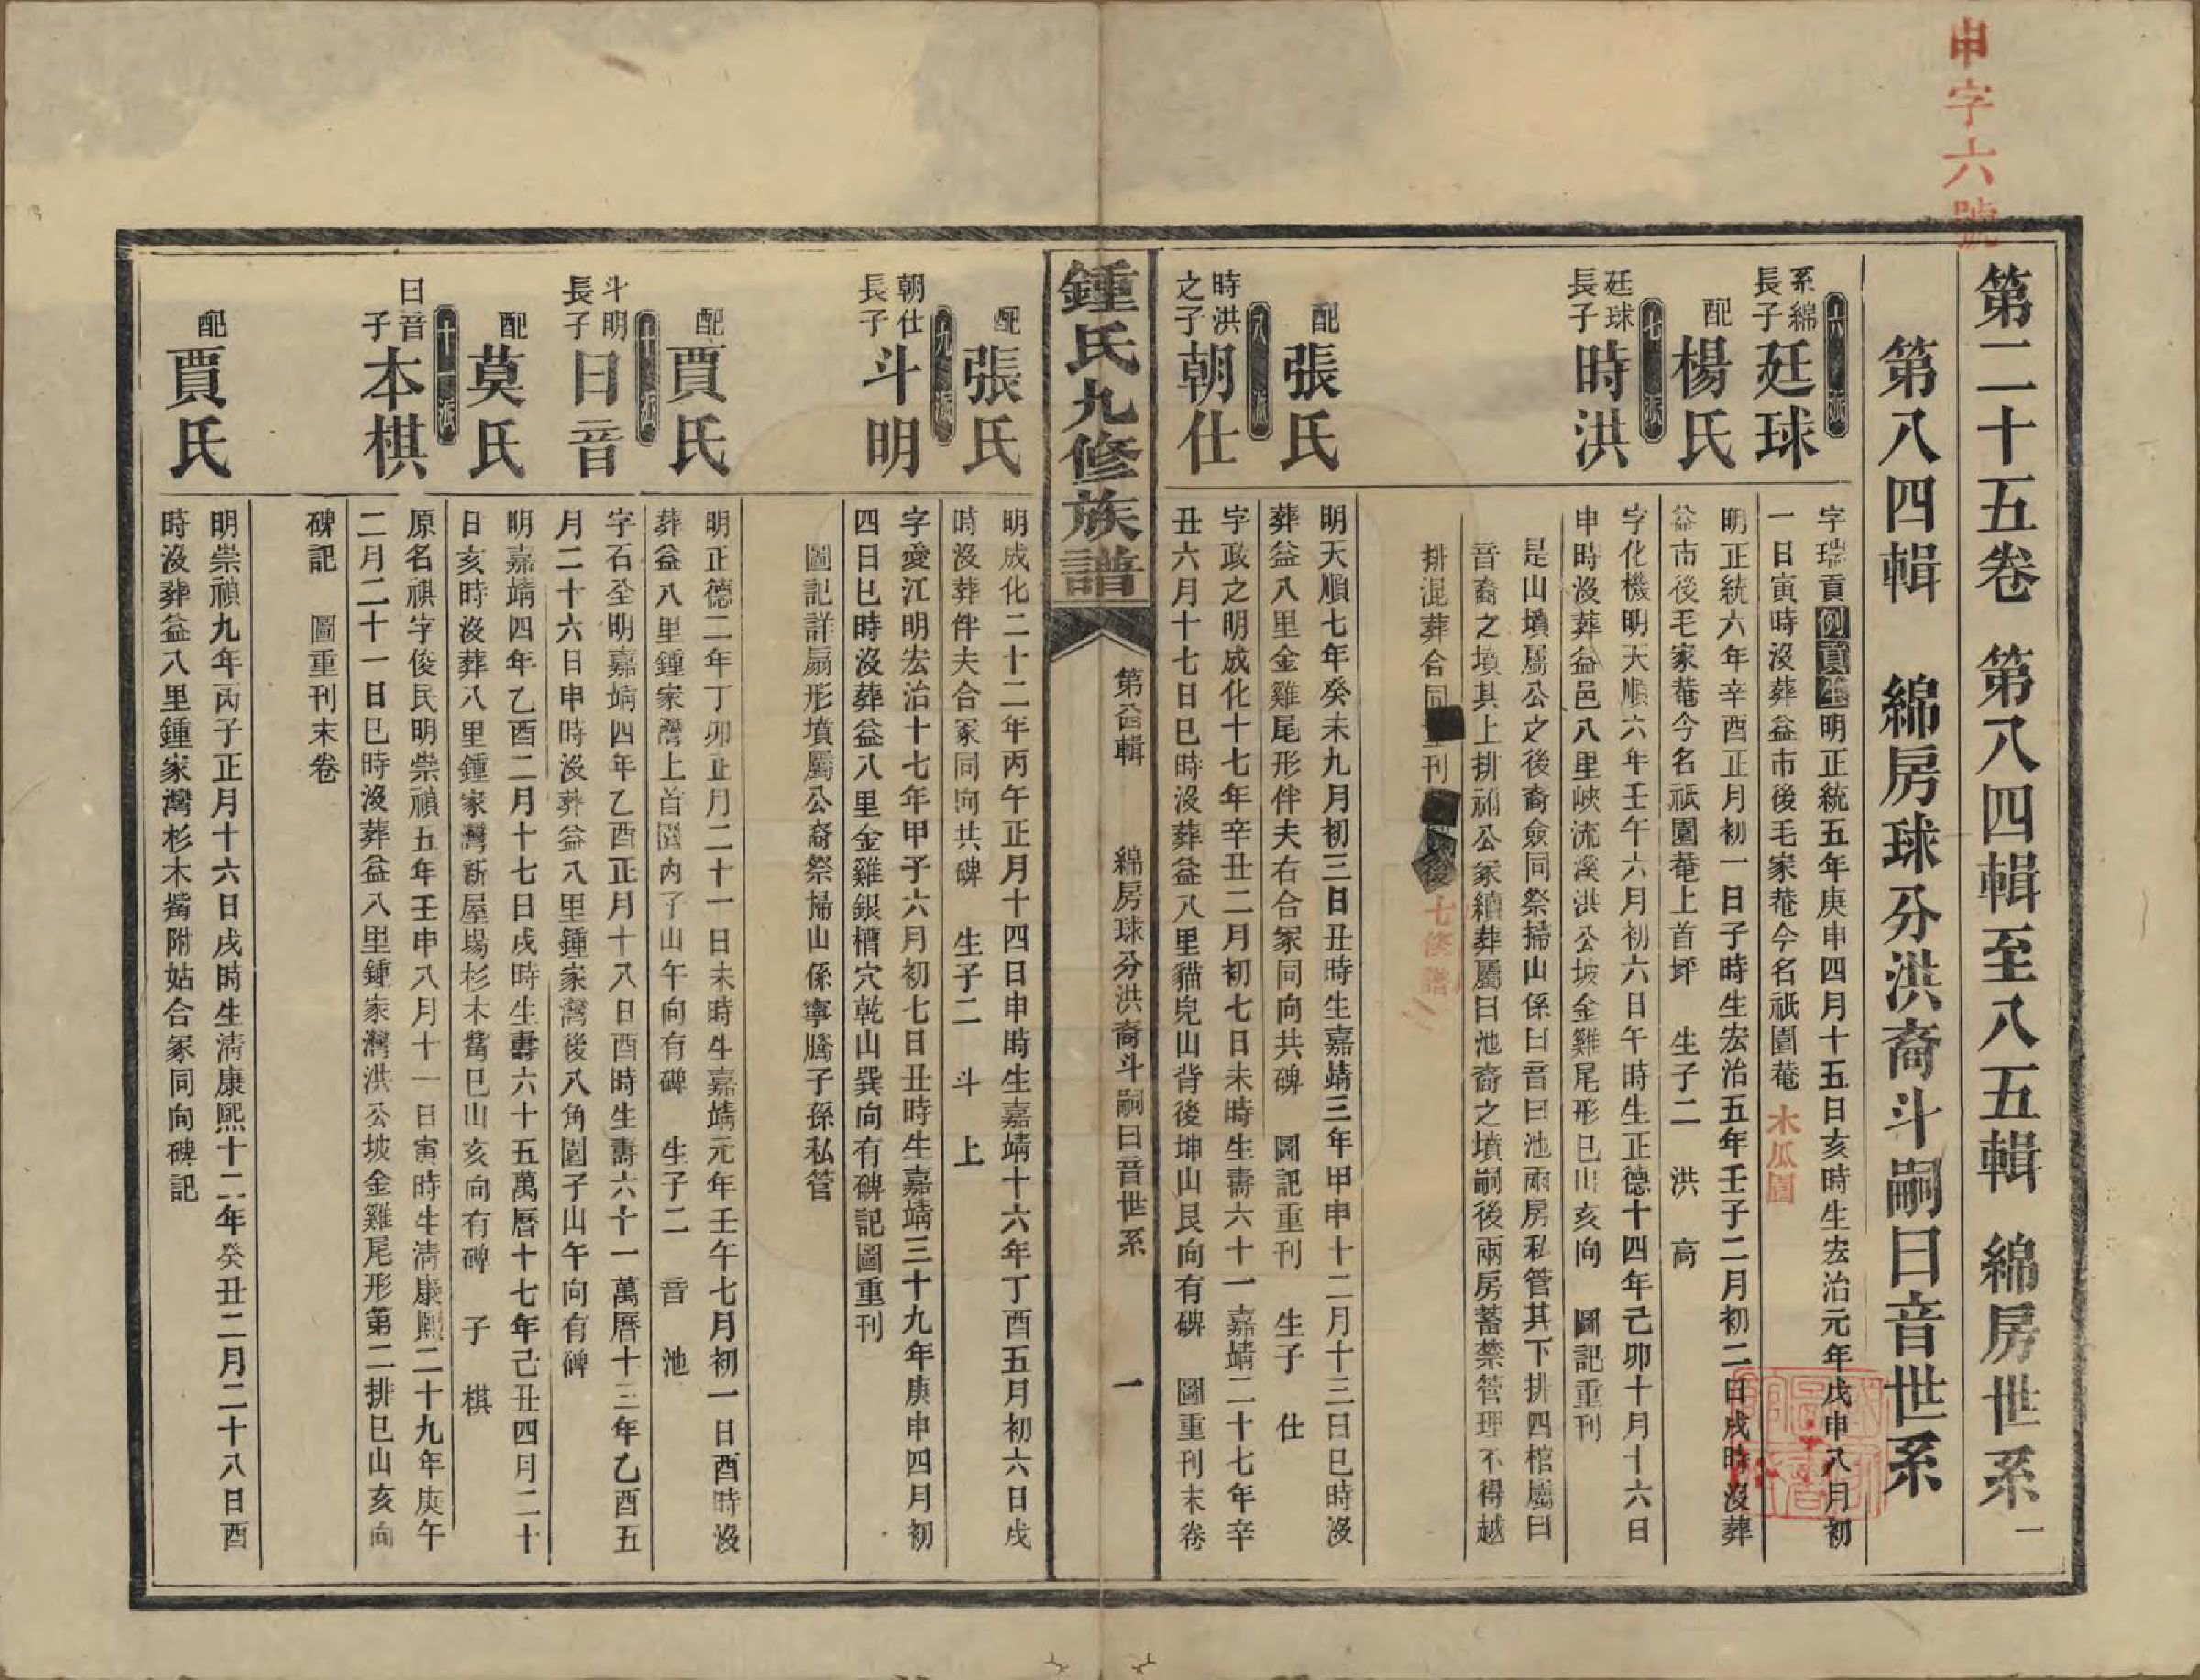 申字六號
第二十五卷　第八四輯至八五輯　綿房世系 一
第八四輯　綿房球分洪裔斗嗣曰音世系
六派
系綿長子
廷球
字瑞貢例貢生明正統五年庚申四月十五日亥時生宏治元年戊申八月初
一日寅時沒葬益市後毛家菴今名祇園菴 木瓜園
配
楊氏
明正統六年辛酉正月初一日子時生宏治五年壬子二月初二日戌時沒葬
益市後毛家菴今名祇園菴上首坪　生子二　洪　高
七派
廷球長子
時洪
字化機明天順六年壬午六月初六日午時生正德十四年己卯十月十六日
申時沒葬益邑八里峽流溪洪公坡金雞尾形巳山亥向　圖記重刊
是山墳屬公之後裔僉同祭掃山係曰音曰池兩房私管其下排四棺屬曰
音裔之墳其上排祔公冢續葬屬曰池裔之墳嗣後兩房蓄禁管理不得越
排混葬合同 刊 後 七修譜
配
張氏
明天順七年癸未九月初三日丑時生嘉靖三年甲申十二月十三日巳時沒
葬益八里金雞尾形伴夫右合冢同向共碑　圖記重刊　生子　仕
八派
時洪之子
朝仕
字政之明成化十七年辛丑二月初七日未時生壽六十一嘉靖二十七年辛
丑六月十七日巳時沒葬益八里貓兒山背後坤山艮向有碑　圖重刊末卷
鍾氏九修族譜
第八四輯　綿房球分洪裔斗嗣曰音世系　一
配
張氏
明成化二十二年丙午正月十四日申時生嘉靖十六年丁酉五月初六日戌
時沒葬伴夫合冢同向共碑　生子二　斗　上
九派
朝仕長子
斗明
字愛江明宏治十七年甲子六月初七日丑時生嘉靖三十九年庚申四月初
四日巳時沒葬益八里金雞銀槽穴乾山巽向有碑記圖重刊
圖記詳扇形墳屬公裔祭掃山係寧騰子孫私管
配
賈氏
明正德二年丁卯正月二十一日未時生嘉靖元年壬午七月初一日酉時沒
葬益八里鍾家灣上首園內子山午向有碑　生子二　音　池
十派
斗明長子
曰音
字石全明嘉靖四年乙酉正月十八日酉時生壽六十一萬曆十三年乙酉五
月二十六日申時沒葬益八里鍾家灣後八角園子山午向有碑
配
莫氏
明嘉靖四年乙酉二月十七日戌時生壽六十五萬曆十七年己丑四月二十
日亥時沒葬八里鍾家灣新屋場杉木觜巳山亥向有碑　子　棋
十一派
曰音子
本棋
原名祺字俊民明崇禎五年壬申八月十一日寅時生清康熙二十九年庚午
二月二十一日巳時沒葬益八里鍾家灣洪公坡金雞尾形第二排巳山亥向
碑記　圖重刊末卷
配
賈氏
明崇禎九年丙子正月十六日戌時生清康熙十二年癸丑二月二十八日酉
時沒葬益八里鍾家灣杉木觜附姑合冢同向碑記